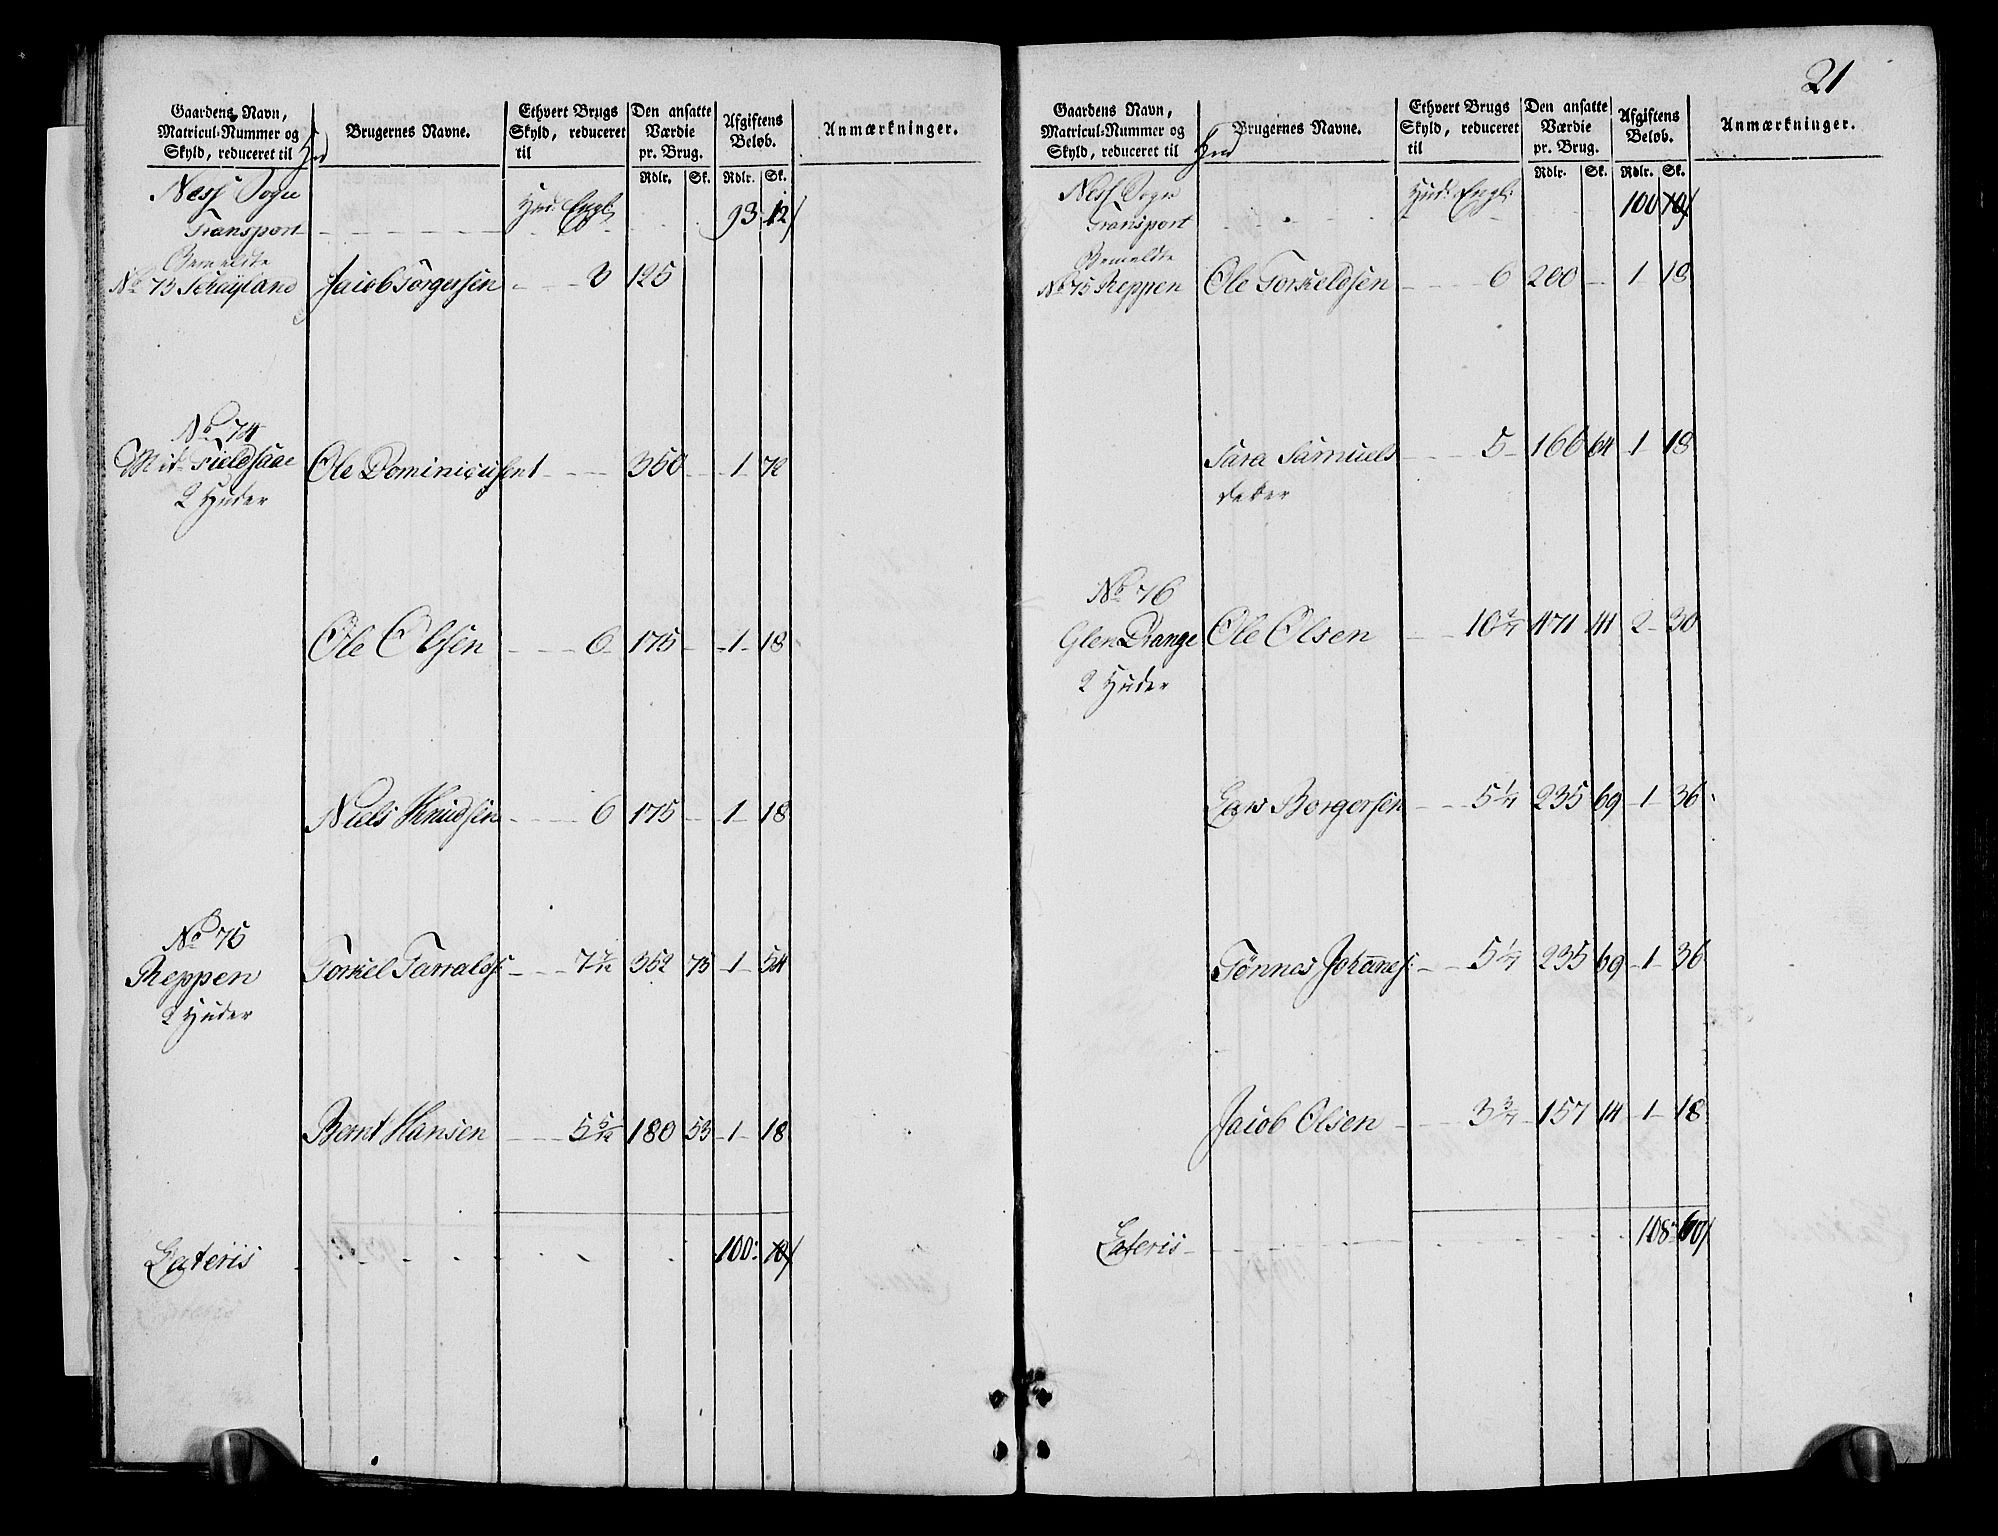 Gaardens Navn,
Matricul-Nummer og
Skyld, reduceret til Hud
Brugernes Navne.
Ethvert Brugs
Skyld, reduceret
til
Den ansatte
Værdie
pr. Brug.
Afgiftens
Beløb.
Anmærkninger.
Rdlr. Sk. Rdlr. Sk.
Ness Sogn Hud: Engl:
Transport 93 12/
Bemeldte
No 73 Jacob Torgersen 3 125
No 74
Mit-Fieldsaae Ole Dominicussen 1 350 1 72
2 Huder
Ole Olsen 6 175 1 18
Niels Knudsen 6 175 1 18
No 75
Reppen Torkel Tarralds: 7 7/12 352 73 1 54
2 Huder
Bernt Hansen 5 5/12 180 53 1 18
Lateris 100: 70/
21
Gaardens Navn,
Matricul-Nummer og
Skyld, reduceret til Hud
Brugernes Navne.
Ethvert Brugs
Skyld, reduceret
til
Den ansatte
Værdie
pr. Brug.
Afgiftens
Beløb.
Anmærkninger.
Rdlr. Sk. Rdlr. Sk.
Ness Sogn Hud: Engl:
Transport 100 70/
Bemeldte
No 75 Reppen Ole Torkeldsen 6 200 1 18
Sara Samuels 5 166 64 1 18
datter
No 76
Glen Drange Ole Olsen 10 2/7 471 41 2 30
2 Huder
Lars Borgersen 5 1/7 235 69 1 36
Tønnes Johannes: 5 1/7 235 69 1 36
Jacob Olsen 3 3/7 157 14 1 18
Lateris 108 60/